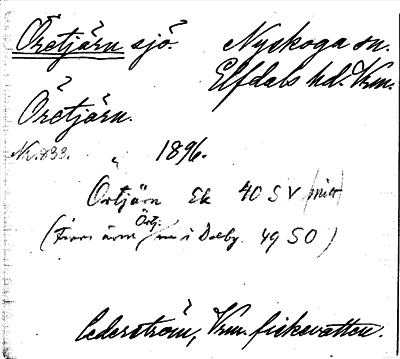 Öretjärn sjö. Nyskoga sn.
Elfdals hd. Vrm.
Öretjärn.
Nr. 833. " 1896.
Örtjärn Ek 40 SV (mitt)
Örtj.
(Finns även i Dalby. 49 SO)
Cederström, Vrm. fiskevatten.